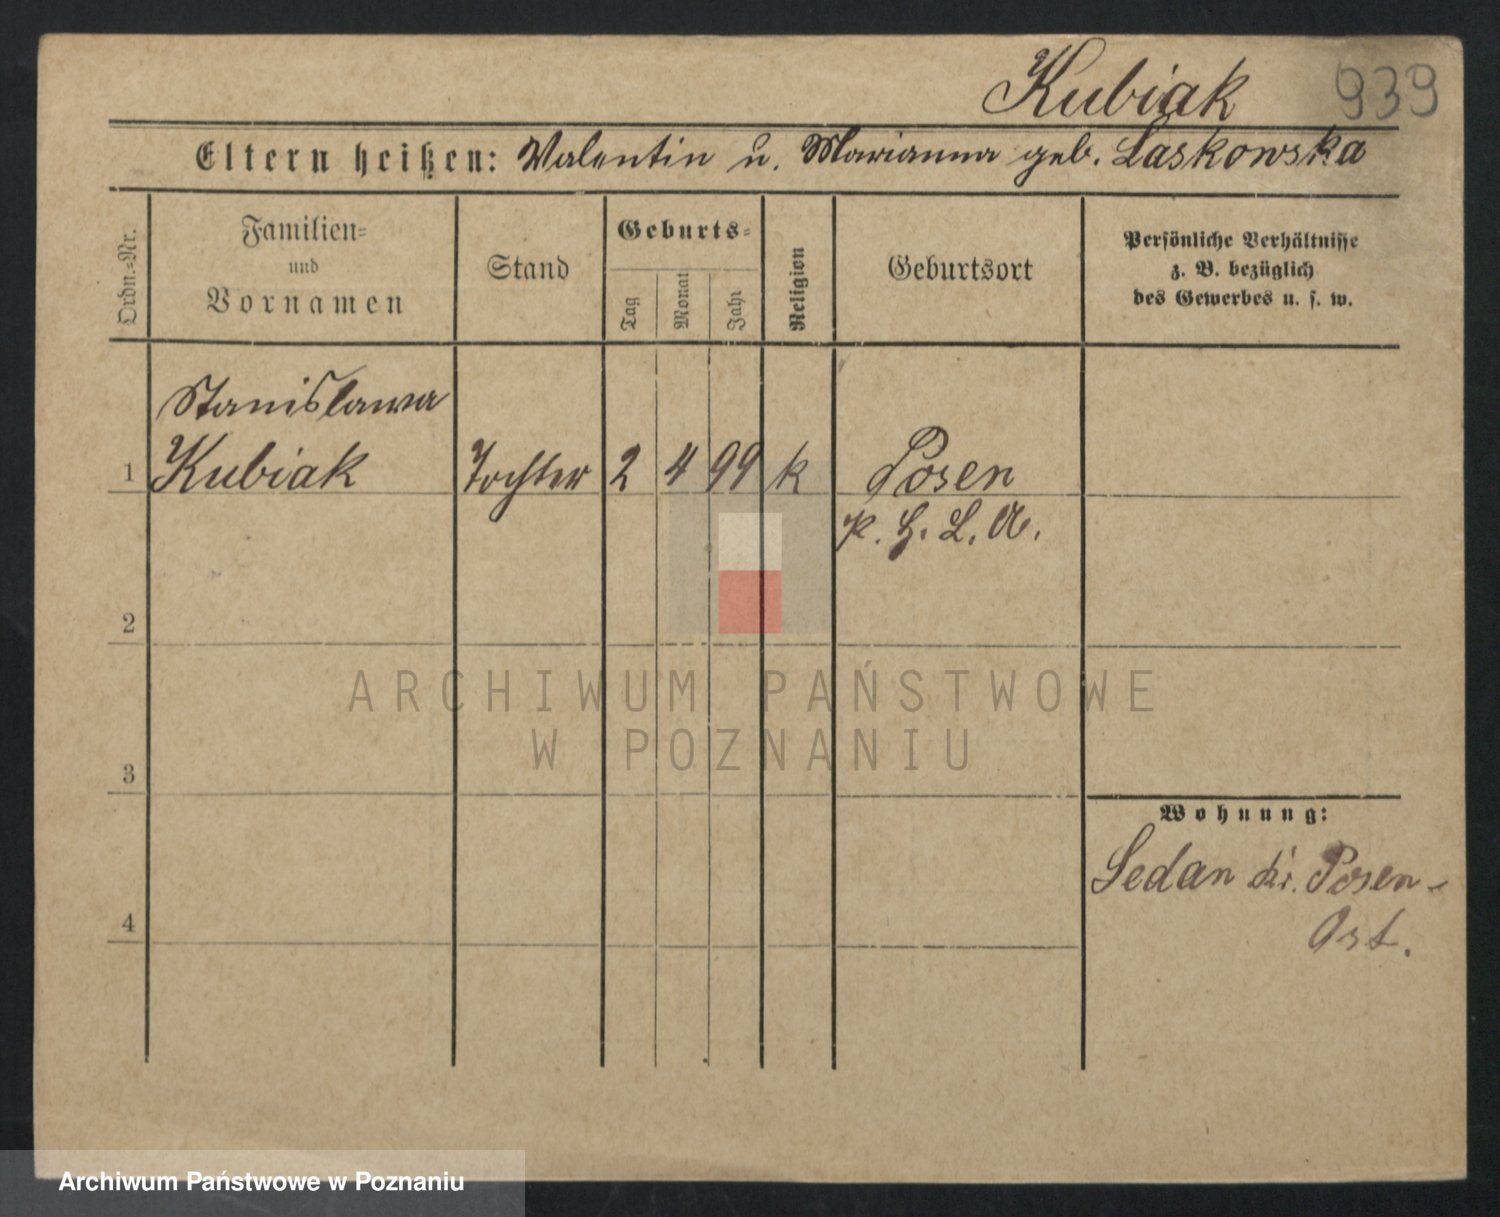 Kubiak 939
Eltern heißen: Valentin u. Marianna geb. Laskowska
Ordn.=Nr.
Familien=
und
Vornamen
Stand
Geburts=
Tag
Monat
Jahr
Religion
Geburtsort
Persönliche Verhältnisse
z. B. bezüglich
des Gewerbes u. s. w.
Stanislawa
1 Kubiak Tochter 2 4 99 k Posen
p. H. L. A.
2
ARCHIWUM PAŃSTWOWE
W POZNANIU
3
Wohnung:
Sedan Kr. Posen-
Ost.
4
Archiwum Państwowe w Poznaniu